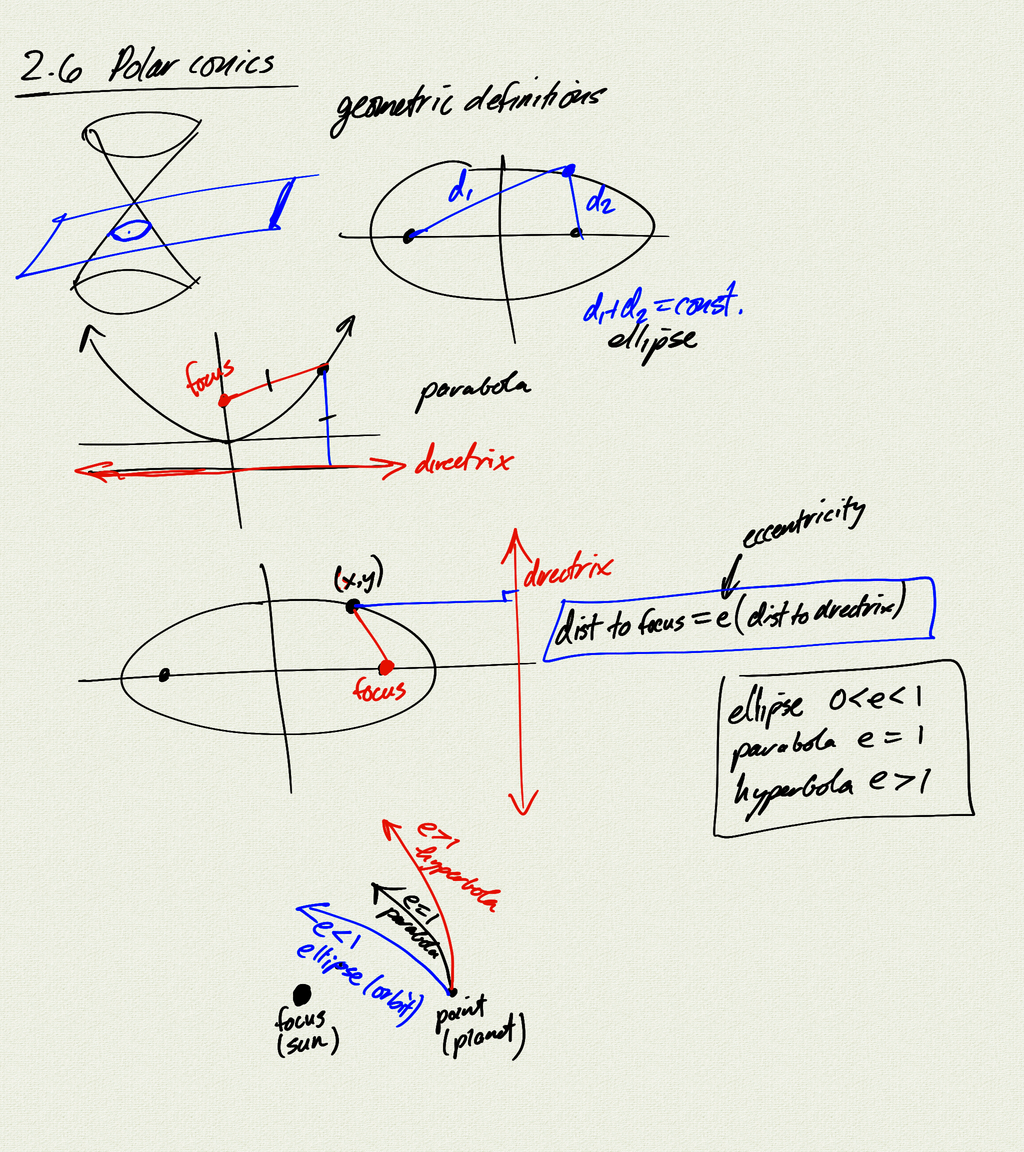 2.6 Polar conics
geometric definitions
d₁
d₂
d₁+d₂ = const.
ellipse
focus
parabola
directrix
eccentricity
(x,y)
directrix
dist to focus = e(dist to directrix)
focus
ellipse 0<e<1
parabola e = 1
hyperbola e > 1
e>1
hyperbola
e=1
parabola
e<1
ellipse (orbit)
focus
(sun)
point
(planet)